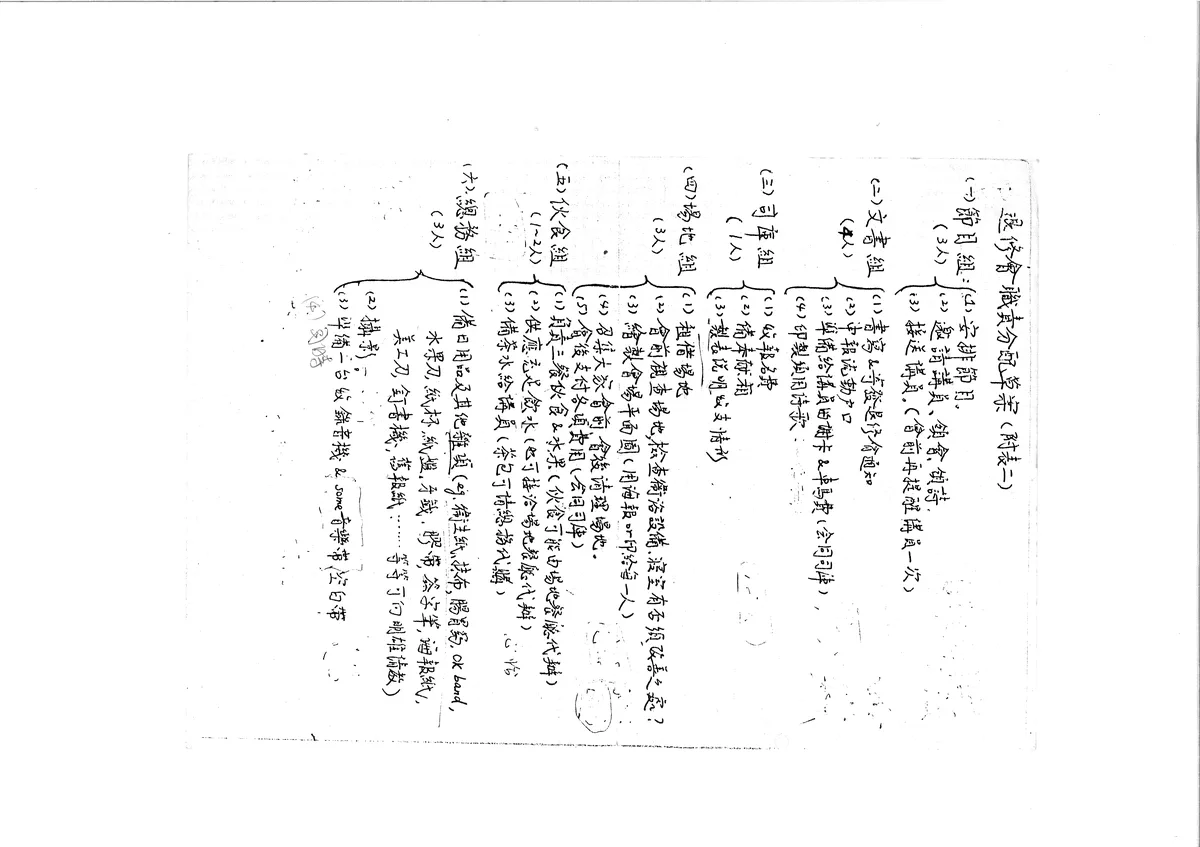 退修會職員分配草案(附表二)
(一)節目組:(1)安排節目.
(3人)(2)邀請講員、領會、領詩.
(3)接送講員.(會前再提醒講員一次)
(二)文書組(1)書寫&寄發退修會通知
(4人)(2)申報流動戶口
(3)準備給講員的謝卡&車馬費(會同司庫),
(4)印製須用詩歌:
(三)司庫組(1)收報名費
(1人)(2)備奉獻箱
(3)製表說明收支情形
(四)場地組(1)租借場地
(3人)(2)會前視查場地,檢查衛浴設備、寢室有否須改善之處?
(3)繪製會場平面圖(用海報or印給每一人)
(4)召集大家會前會後清理場地。
(5)會後支付各項費用(會同司庫)
(五)伙食組(1)負責三餐伙食&水果(伙食可能由場地餐廳代辦)
(1~2人)(2)供應充足飲水(也可接洽場地餐廳代辦)
(3)備茶水給講員(茶包可請總務代購)
(六)總務組(1)備日用品及其他雜項(eg.衛生紙,抹布,腸胃藥,OK band,
(3人)水果刀,紙杯,紙盤,牙籤,膠帶,簽字筆,海報紙,
美工刀,釘書機,舊報紙……等等可向明雄請教)
(2)攝影:
(3)準備一台收錄音機& some音樂帶/空白帶